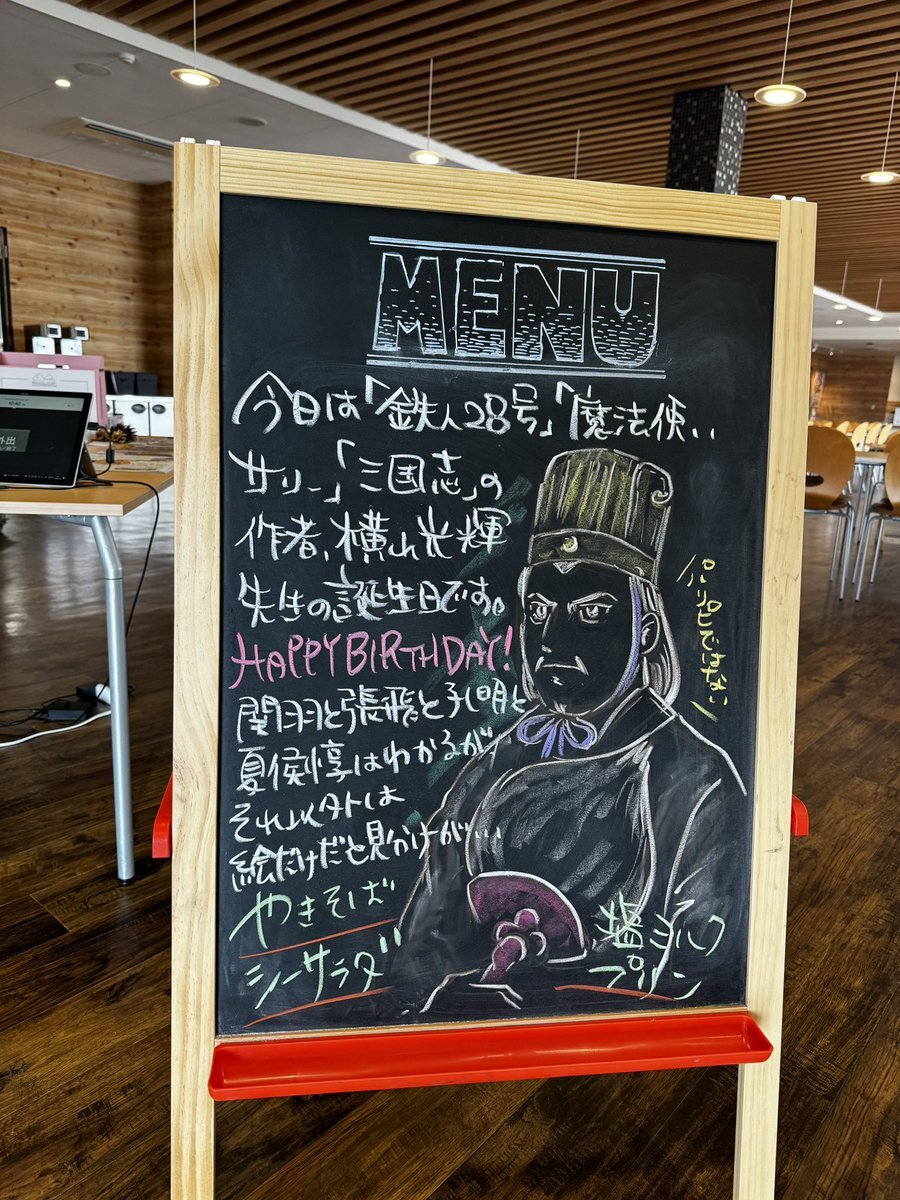 MENU
今日は「鉄人28号」「魔法使い
サリー」「三国志」の
作者、横山光輝
先生の誕生日です。
HAPPY BIRTHDAY!
関羽と張飛と孔明と
夏侯惇はわかるが
それ以外は
絵だけだと見分けがい…
パリピではない
やきそば
シーサラダ
塩ミルク
プリン
外出